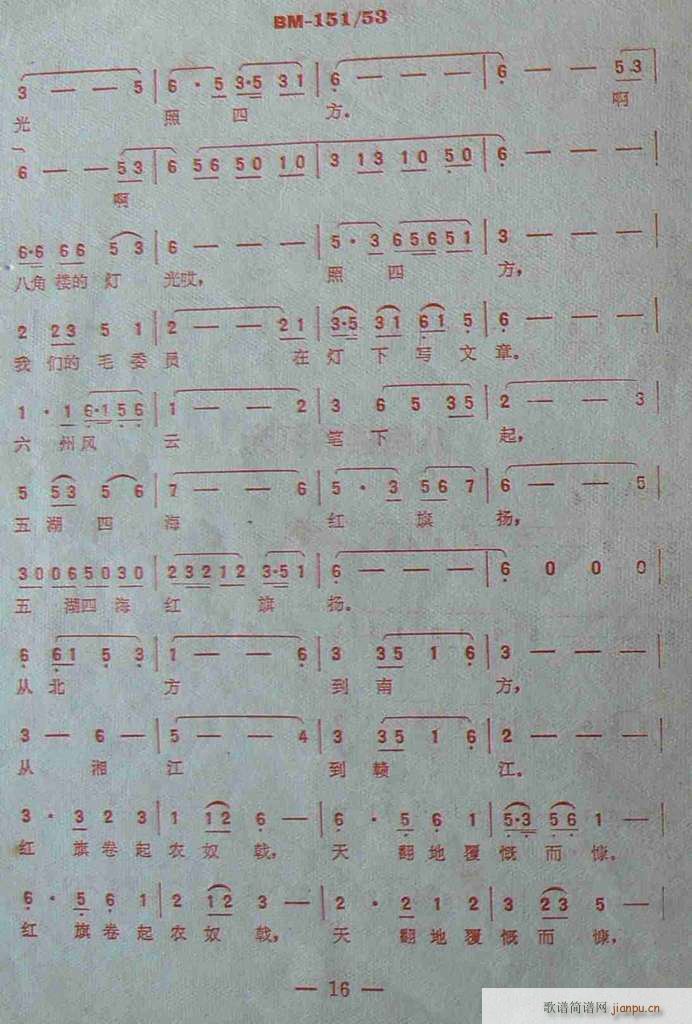 BM-151/53
3 — — 5 | 6 · 5 3·5 3 1 | 6 — — — | 6 — — 5 3 |
光 照 四 方。 啊
6 — — 5 3 | 6 5 6 5 0 1 0 | 3 1 3 1 0 5 0 | 6 — — — |
啊
6·6 6 6 5 3 | 6 — — — | 5 · 3 6 5 6 5 1 | 3 — — — |
八角 楼的 灯 光哎, 照 四 方,
2 2 3 5 1 | 2 — — 2 1 | 3·5 3 1 6 1 5 | 6 — — — |
我 们的 毛 委 员 在 灯 下 写 文 章。
1 · 1 6·1 5 6 | 1 — — 2 | 3 6 5 3 5 | 2 — — 3 |
六 州 风 云 笔 下 起,
5 5 3 5 6 | 7 — — 6 | 5 · 3 5 6 7 | 6 — — 5 |
五 湖 四 海 红 旗 扬,
3 0 0 6 5 0 3 0 | 2 3 2 1 2 3·5 1 | 6 — — — | 6 0 0 0 |
五 湖四 海 红 旗 扬。
6 6 1 5 3 | 1 — — 6 | 3 3 5 1 6 | 3 — — — |
从 北 方 到 南 方,
3 — 6 — | 5 — — 4 | 3 3 5 1 6 | 2 — — — |
从 湘 江 到 赣 江。
3 · 3 2 3 | 1 1 2 6 — | 6 · 5 6 1 | 5·3 5 6 1 — |
红 旗 卷 起 农 奴 戟, 天 翻 地 覆 慨 而 慷。
6 · 5 6 1 | 2 1 2 3 — | 2 · 2 1 2 | 3 2 3 5 — |
红 旗 卷 起 农 奴 戟, 天 翻 地 覆 慨 而 慷,
— 16 —
歌谱简谱网
jianpu.cn